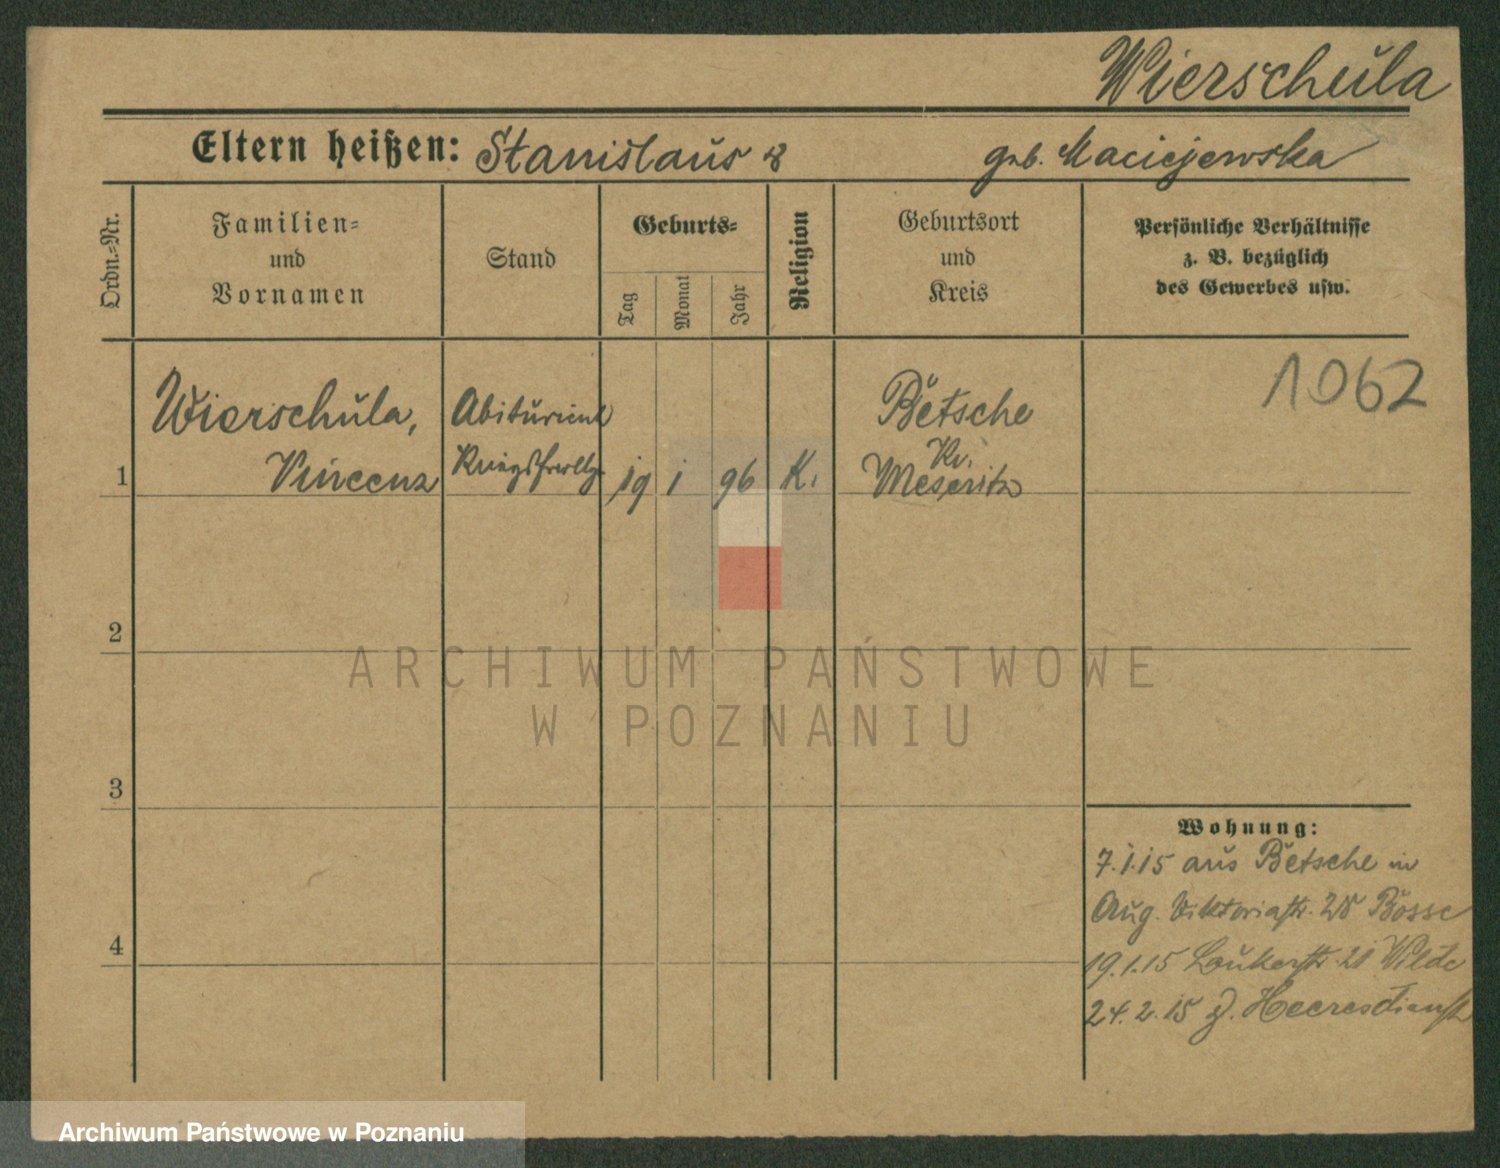 Wierschula
Eltern heißen: Stanislaus & geb. Maciejewska
Ordn.-Nr.
Familien-
und
Vornamen
Stand
Geburts-
Tag
Monat
Jahr
Religion
Geburtsort
und
Kreis
Persönliche Verhältnisse
z. B. bezüglich
des Gewerbes usw.
1062
Wierschula, Abiturient Betsche
Kr.
1 Vincenz Kriegsfreiwllg. 19 1 96 K. Meseritz
2
ARCHIWUM PAŃSTWOWE
W POZNANIU
3
Wohnung:
7.1.15 aus Betsche in
Aug. Viktoriastr. 28 Bosse
4
19.1.15 21 Wilde
24.2.15 z. Heeresdienst
Archiwum Państwowe w Poznaniu